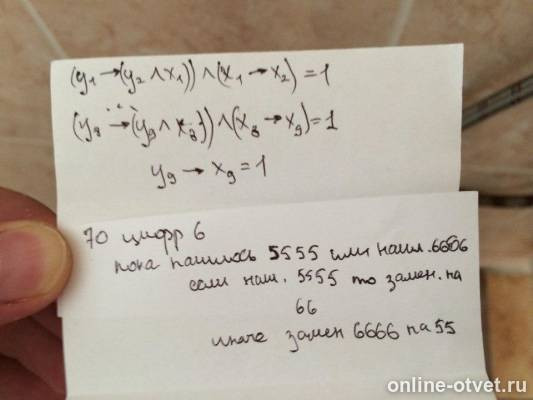 (y₁→(y₂∧x₁))∧(x₁→x₂)=1
...
(y₈→(y₉∧x₈))∧(x₈→x₉)=1
y₉→x₉=1
70 цифр 6
пока нашлось 5555 или нашл.6666
если наш. 5555 то замен. на
66
иначе замен 6666 на 55
online-otvet.ru